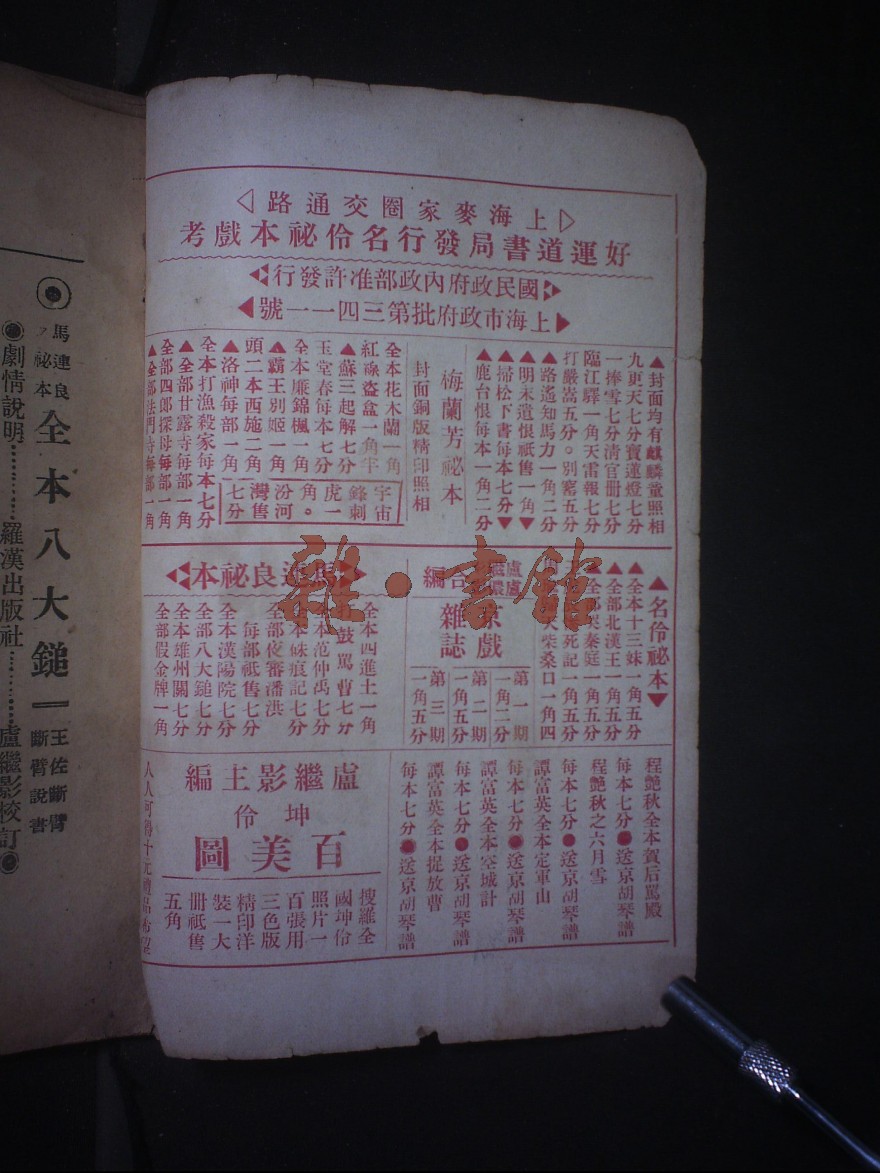 ▷上海麥家圈交通路◁
好運道書局發行名伶祕本戲考
國民政府內政部准許發行
▶上海市政府批第三四一一號◀
▲封面均有麒麟童照相
九更天七分寶蓮燈七分
一捧雪七分淸官冊七分
臨江驛一角天雷報七分
打嚴嵩五分。別窰五分
▲路遙知馬力一角二分
▲明末遺恨祇售一角▼
▲掃松下書每本七分▼
▲鹿台恨每本一角二分
梅蘭芳祕本
封面銅版精印照相
全本花木蘭一角
紅線盜盒一角半
▲蘇三起解七分
玉堂春每本七分
全本廉錦楓一角
▲霸王別姬一角
頭二本西施二角
▲洛神每部一角
宇宙
鋒刺
虎一
角。
汾河
灣售
七分
全本打漁殺家每本七分
▲全部甘露寺每部一角
全部四郎探母每部一角
▲全部法門寺每部一角
▲名伶祕本▼
▲全本十三妹一角五分
▲全部北漢王一角五分
秦庭一角五分
死記一角五分
柴桑口一角四
編
京戲
雜誌
第一期
一角二分
第二期
一角五分
第三期
一角五分
馬連良祕本
全本四進士一角
打鼓罵曹七分
全本范仲禹七分
全本硃痕記七分
全部夜審潘洪
每部祇售七分
全本漢陽院七分
全部八大鎚七分
全本雄州關七分
全部假金牌一角
程艷秋全本賀后罵殿
每本七分●送京胡琴譜
程艷秋之六月雪
每本七分●送京胡琴譜
譚富英全本定軍山
每本七分●送京胡琴譜
譚富英全本空城計
每本七分●送京胡琴譜
譚富英全本捉放曹
每本七分●送京胡琴譜
盧繼影主編
坤伶
百美圖
搜羅全
國坤伶
照片一
百張用
三色版
精印洋
裝一大
冊祇售
五角
人人可得十元禮品希望
馬連良
祕本
全本八大鎚
王佐斷臂
斷臂說書
◉劇情說明⋯⋯羅漢出版社⋯⋯盧繼影校訂◉
雜·書館